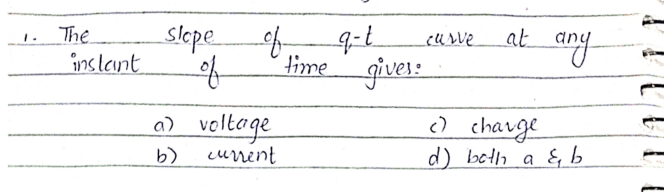 1. The slope of q-t curve at any
instant of time gives:
a) voltage c) charge
b) current d) both a & b